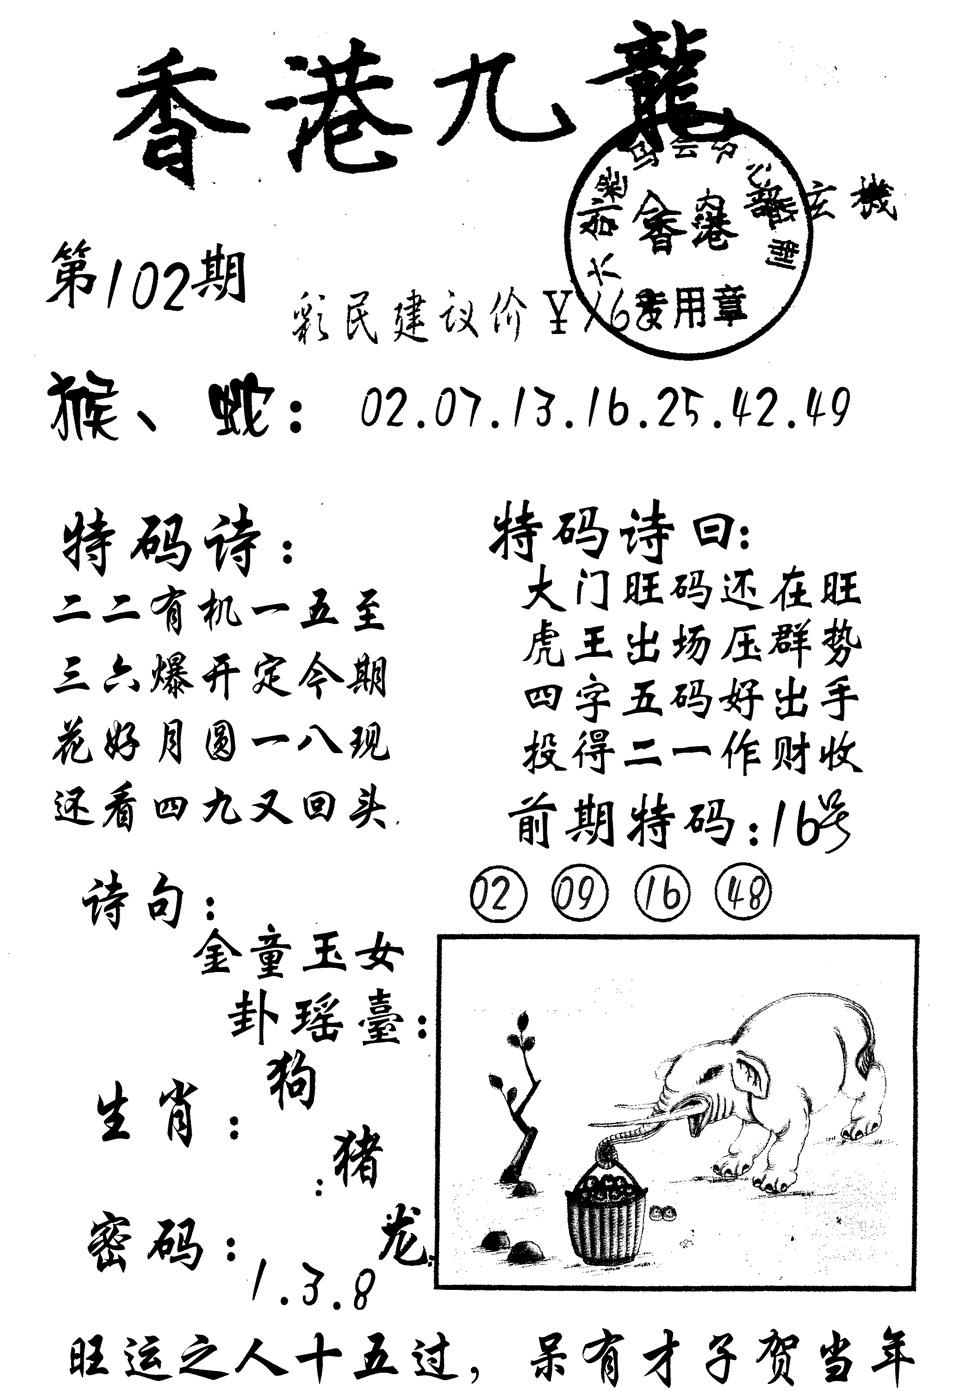 香港九龍
內部玄機
香港
专用章
第102期
彩民建议价￥168
猴、蛇：02.07.13.16.25.42.49
特码诗：
二二有机一五至
三六爆开定今期
花好月圆一八现
还看四九又回头
特码诗曰：
大门旺码还在旺
虎王出场压群势
四字五码好出手
投得二一作财收
前期特码：16号
02 09 16 48
诗句：
金童玉女
卦瑶臺：
生肖：
狗
：猪
龙
密码：
1.3.8
旺运之人十五过，呆有才子贺当年